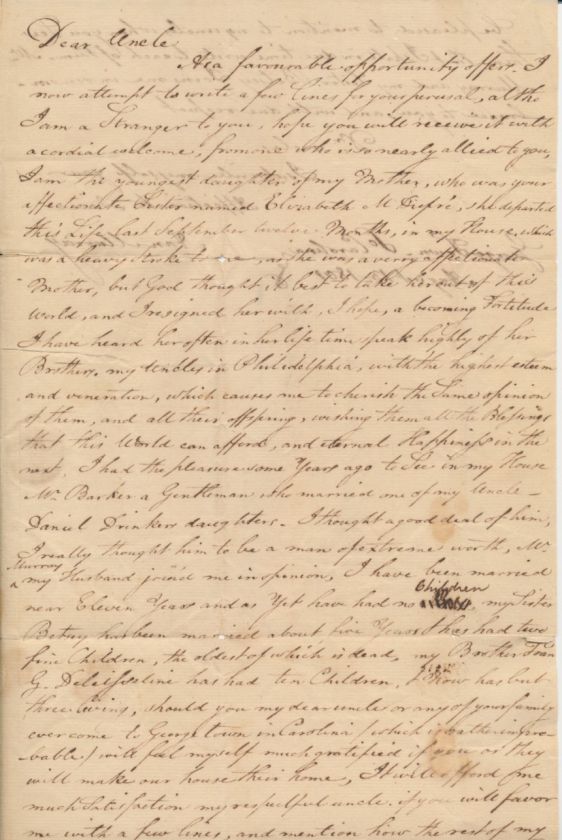 Dear Uncle
As a favourable opportunity offers. I
now attempt to write a few lines for your perusal, altho
I am a Stranger to you, hope you will receive it with
a cordial welcome, from one who is so nearly allied to you,
I am the youngest daughter of my Mother, who was your
affectionate Sister named Elizabeth M Diefré, she departed
this Life last September twelve Months, in my House, which
was a heavy stroke to me, as she was a very affectionate
Mother, but God thought it best to take her out of this
World, and I resigned her with, I hope, a becoming Fortitude
I have heard her often in her life time speak highly of her
Brothers, my Uncles in Philidelphia, with the highest esteem
and veneration, which causes me to cherish the Same opinion
of them, and all their offspring, wishing them all the Blessings
that this World can afford, and eternal Happiness in the
next. I had the pleasure some Years ago to See in my House
Mr Barker a Gentleman who married one of my Uncle
Daniel Drinkers daughters. I thought a good deal of him,
I really thought him to be a man of extreme worth, Mr
Murray
my Husband join'd me in opinion, I have been married
Children
near Eleven Years and as Yet have had no my Sister
Betsey has been married about five Years & has had two
fine Children, the oldest of which is dead, my Brother Fran
G. Deleisseline has had ten Children, & now has but
three living, should you my dear uncle or any of your family
ever come to George town in Carolina (which is rather impro-
bable) will feel myself much gratified if you or they
will make our house their home, It will afford me
much Satisfaction my respectful uncle. if you will favor
me with a few lines, and mention how the rest of my